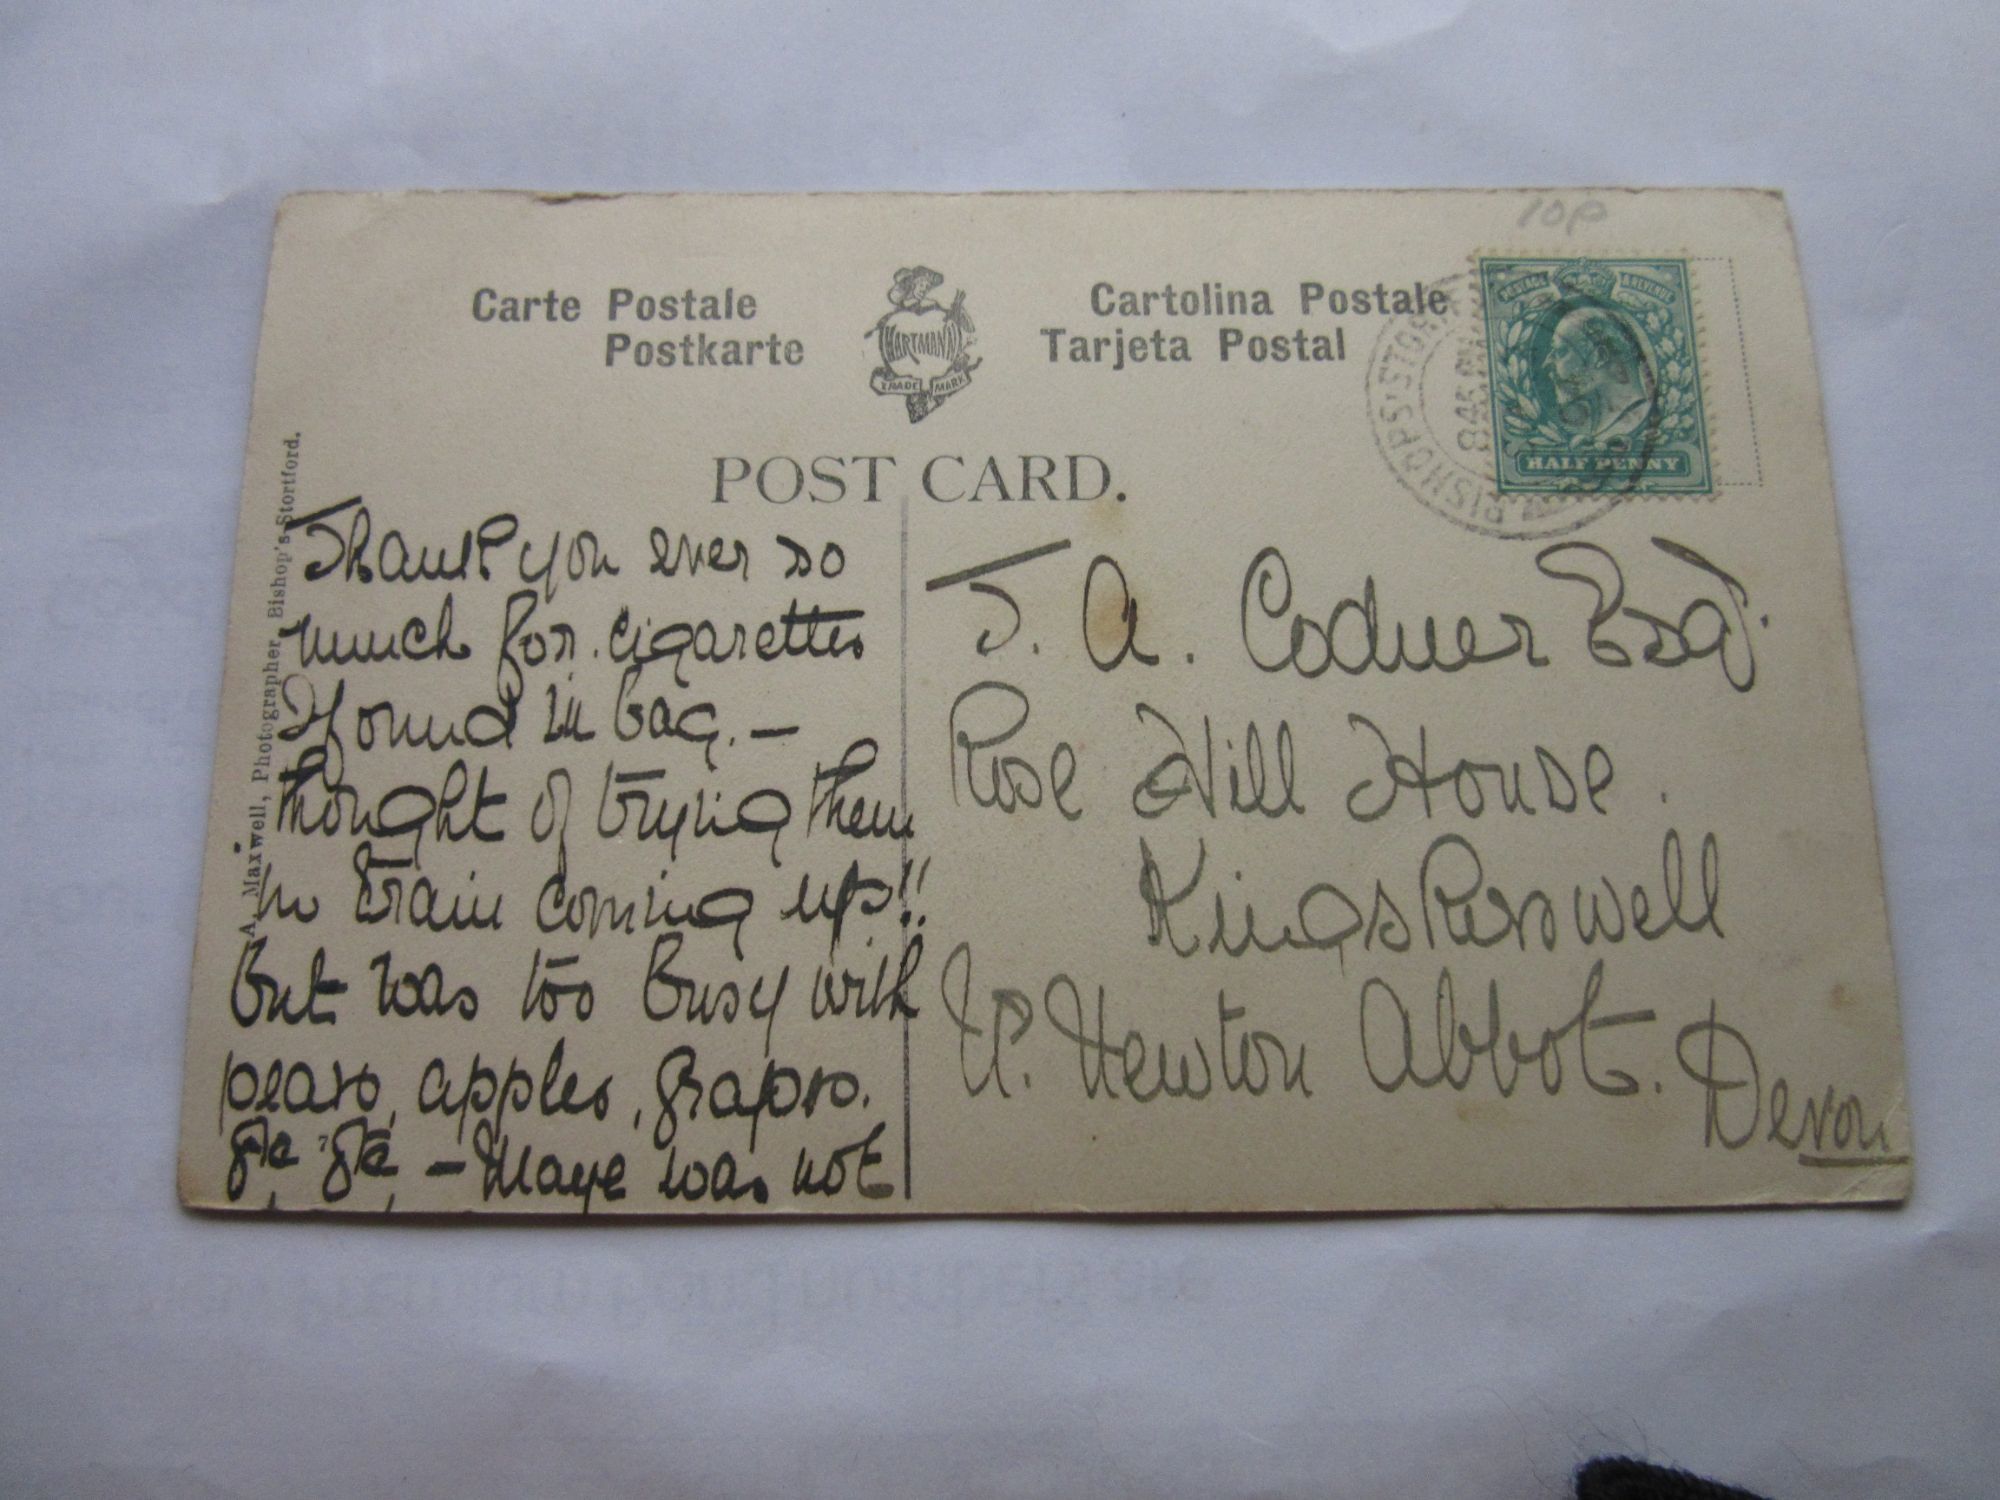 10p
Carte Postale
Postkarte
HARTMANN
TRADE MARK
Cartolina Postale
Tarjeta Postal
POSTAGE & REVENUE
HALF PENNY
BISHOPS STORTFORD
8 45 PM
POST CARD.
A. Maxwell, Photographer, Bishop's Stortford.
Thank you ever so
much for cigarettes
I found in bag. —
thought of trying them
in train coming up!!
but was too busy with
pears, apples, grapes.
&tc &tc, — Maye was not
J. A. Codner Esq.
Rose Hill House.
Kingskerswell
Nr. Newton Abbot.
Devon